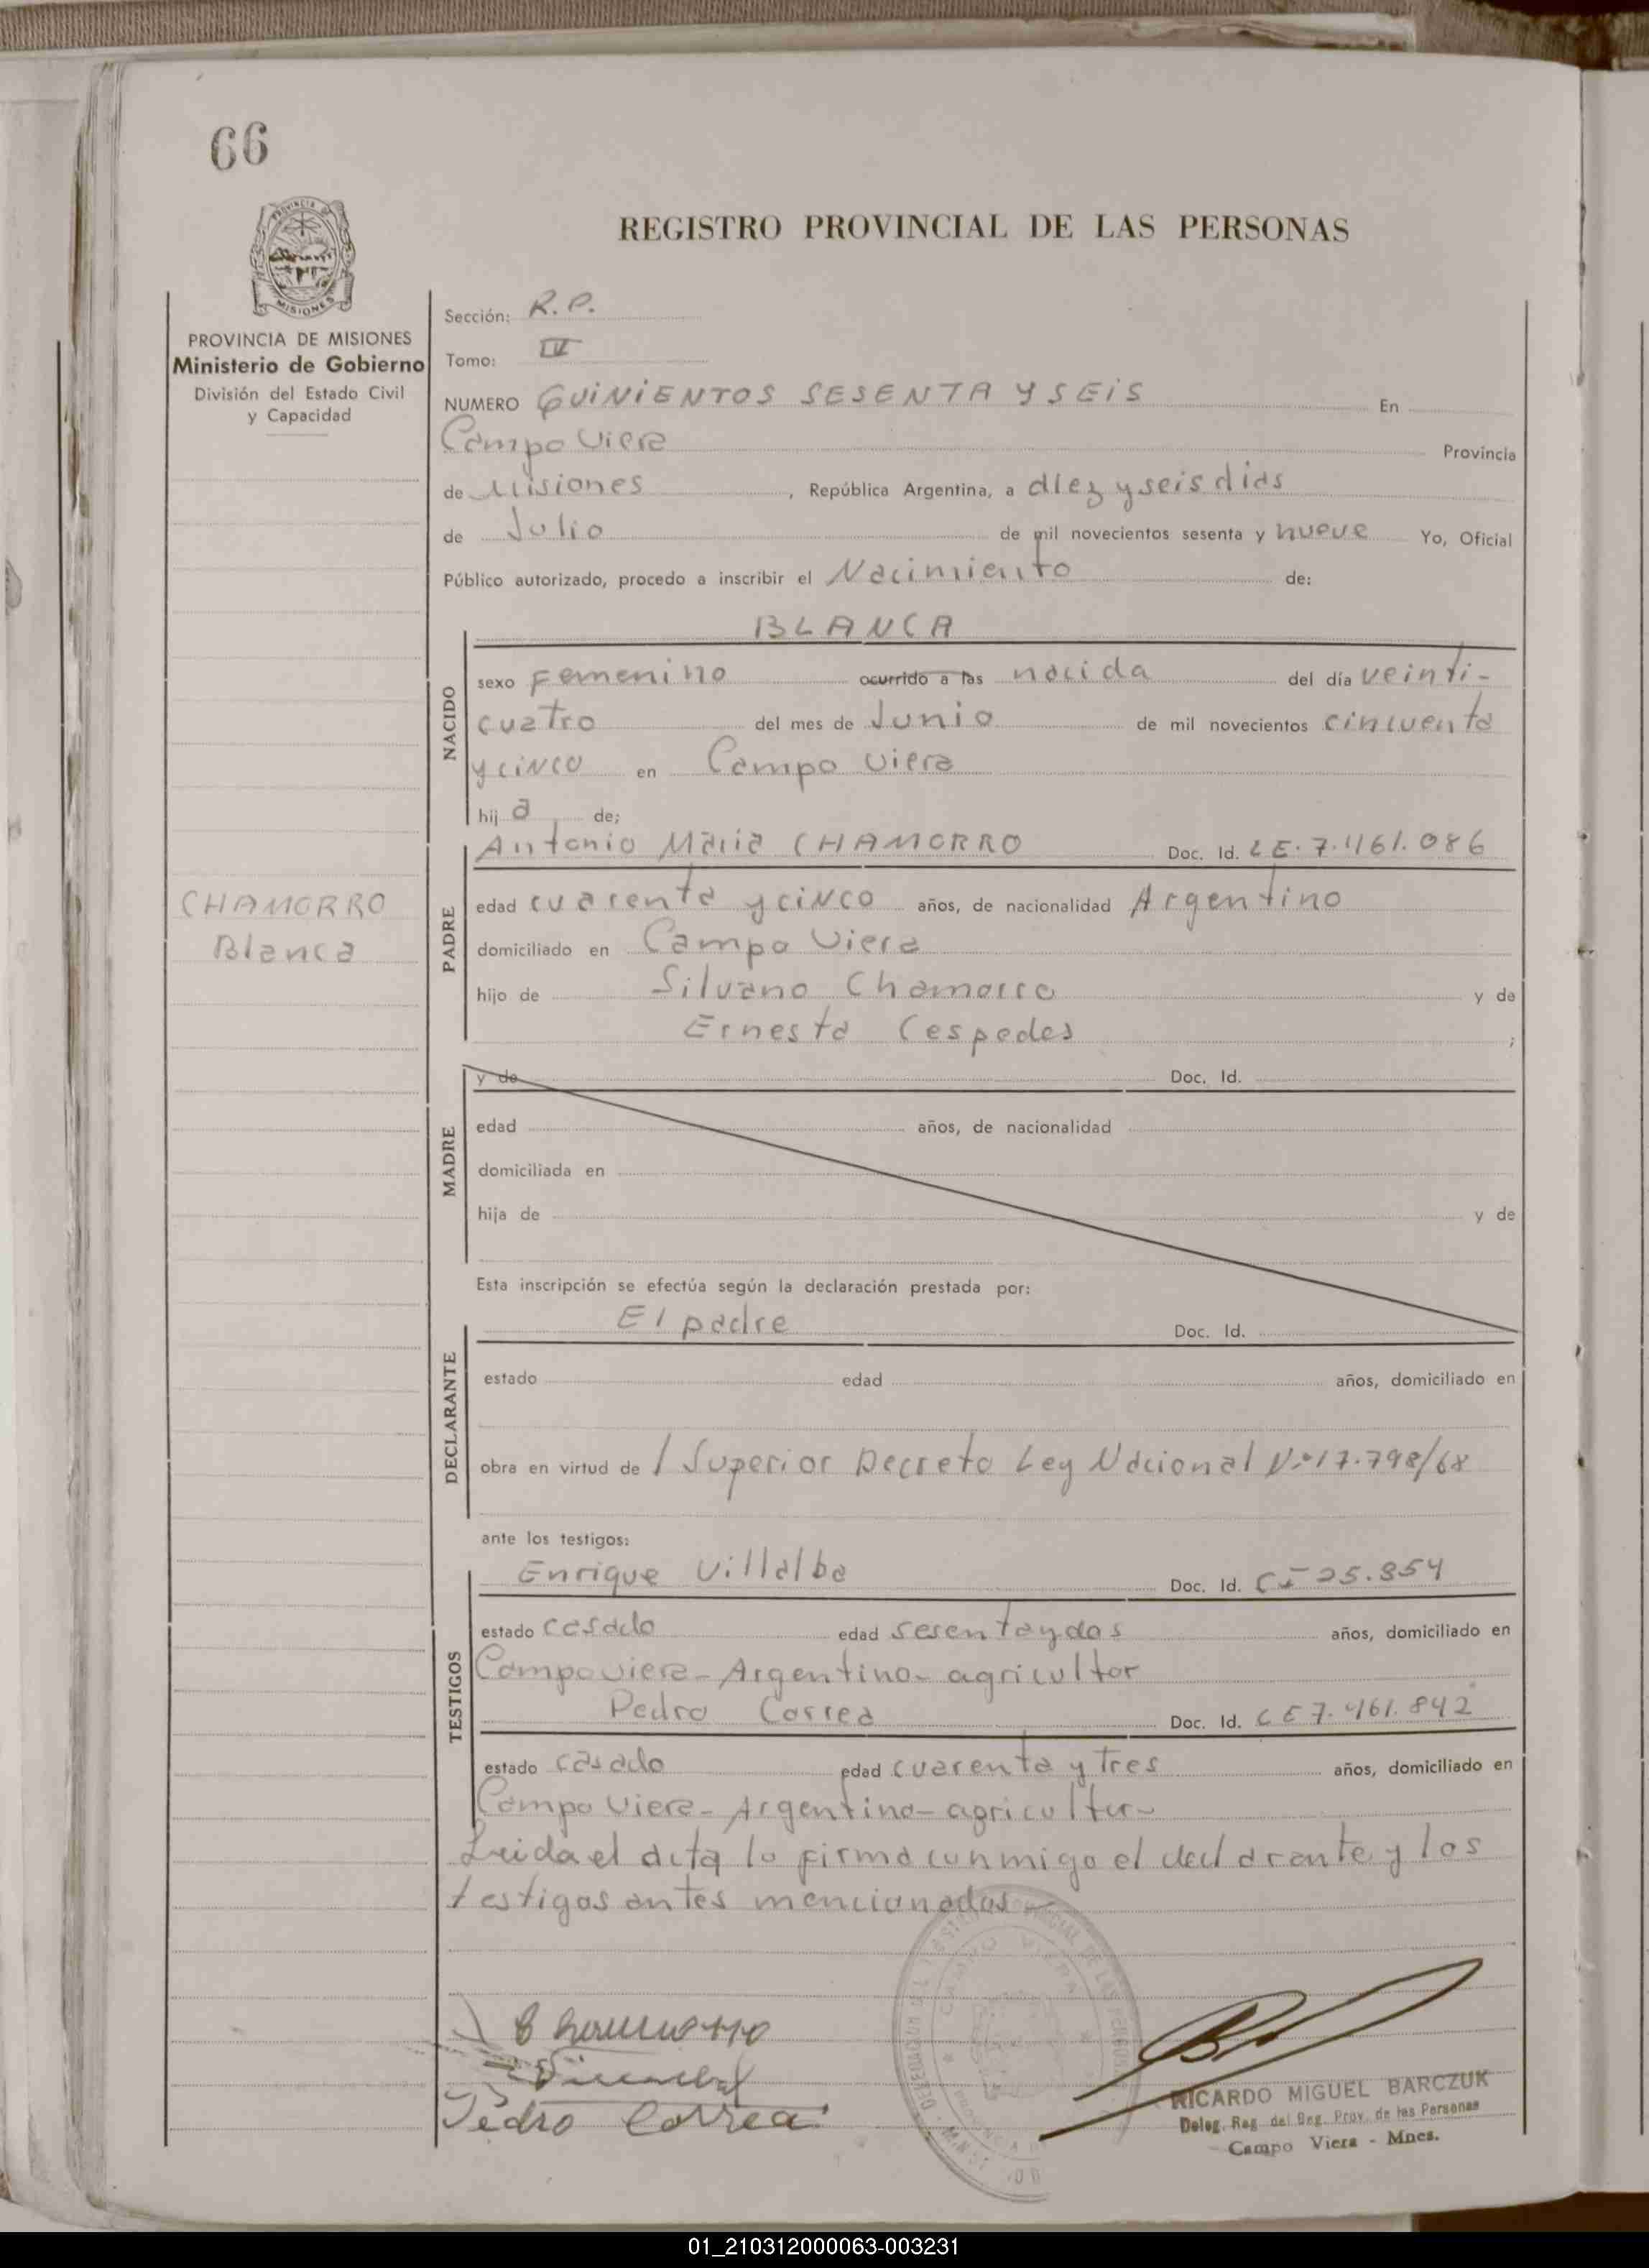 66
REGISTRO PROVINCIAL DE LAS PERSONAS
PROVINCIA DE
MISIONES
PROVINCIA DE MISIONES
Ministerio de Gobierno
División del Estado Civil
y Capacidad
Sección: R.P.
Tomo: IV
NUMERO QUINIENTOS SESENTA Y SEIS En
Campo Viera Provincia
de Misiones, República Argentina, a diez y seis dias
de Julio de mil novecientos sesenta y nueve Yo, Oficial
Público autorizado, procedo a inscribir el Nacimiento de:
NACIDO
BLANCA
sexo Femenino ocurrido a las nacida del día veinti-
cuatro del mes de Junio de mil novecientos cincuenta
y cinco en Campo Viera
hij a de;
PADRE
Antonio Maria CHAMORRO Doc. Id. LE. 7.461.086
CHAMORRO
Blanca
edad cuarenta y cinco años, de nacionalidad Argentino
domiciliado en Campo Viera
hijo de Silvano Chamorro y de
Ernesta Cespedes ;
MADRE
y de Doc. Id.
edad años, de nacionalidad
domiciliada en
hija de y de
Esta inscripción se efectúa según la declaración prestada por:
DECLARANTE
El padre Doc. Id.
estado edad años, domiciliado en
obra en virtud de / Superior Decreto Ley Nacional Nº 17.798/68
ante los testigos:
TESTIGOS
Enrique Villalba Doc. Id. CI 25.854
estado casado edad sesenta y dos años, domiciliado en
Campo Viera - Argentino - agricultor
Pedro Correa Doc. Id. LE 7.461.842
estado casado edad cuarenta y tres años, domiciliado en
Campo Viera - Argentino - agricultor -
Leida el acta la firma conmigo el declarante y los
testigos antes mencionados
CAMPO VIERA
Chamorro
Pedro Correa
RICARDO MIGUEL BARCZUK
Deleg. Reg. del Reg. Prov. de las Personas
Campo Viera - Mnes.
01_210312000063-003231